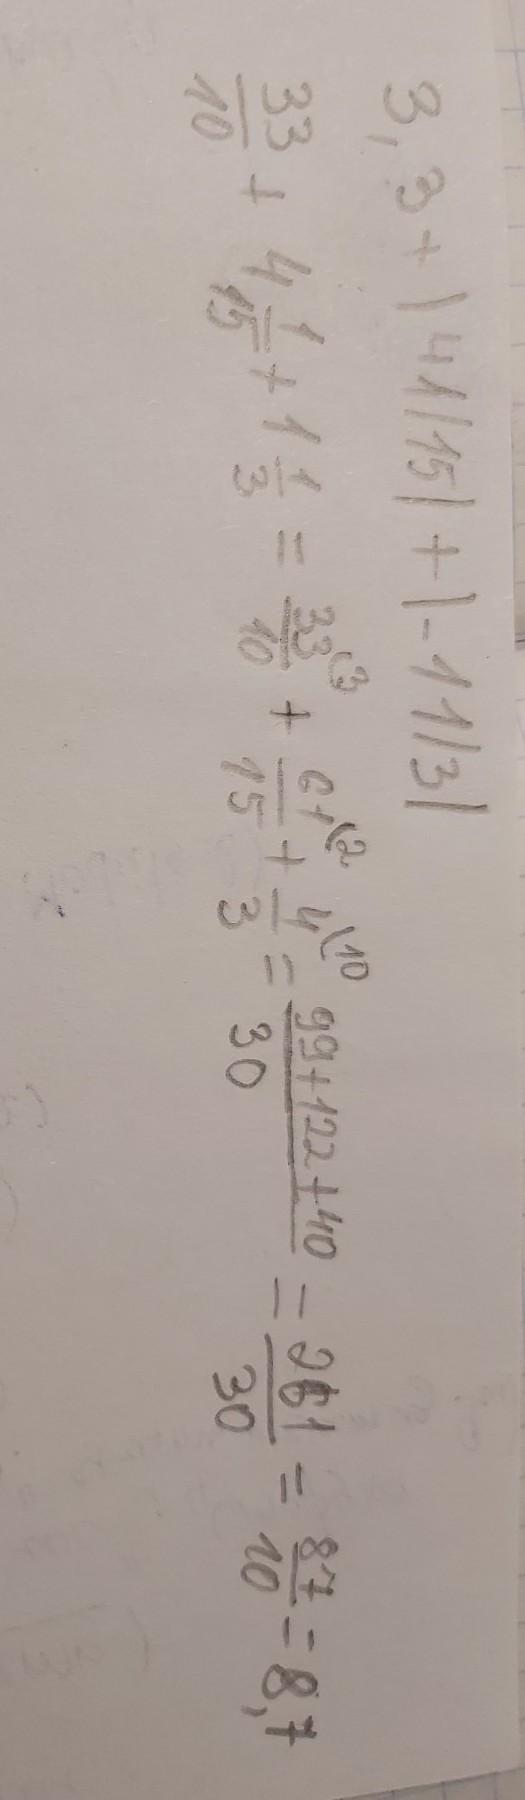 3,3 + |41/15| + |-11/3|
33/10 + 4 1/15 + 1 1/3 = 33/10 \3 + 61/15 \2 + 4/3 \10 = 99+122+40/30 = 261/30 = 87/10 = 8,7